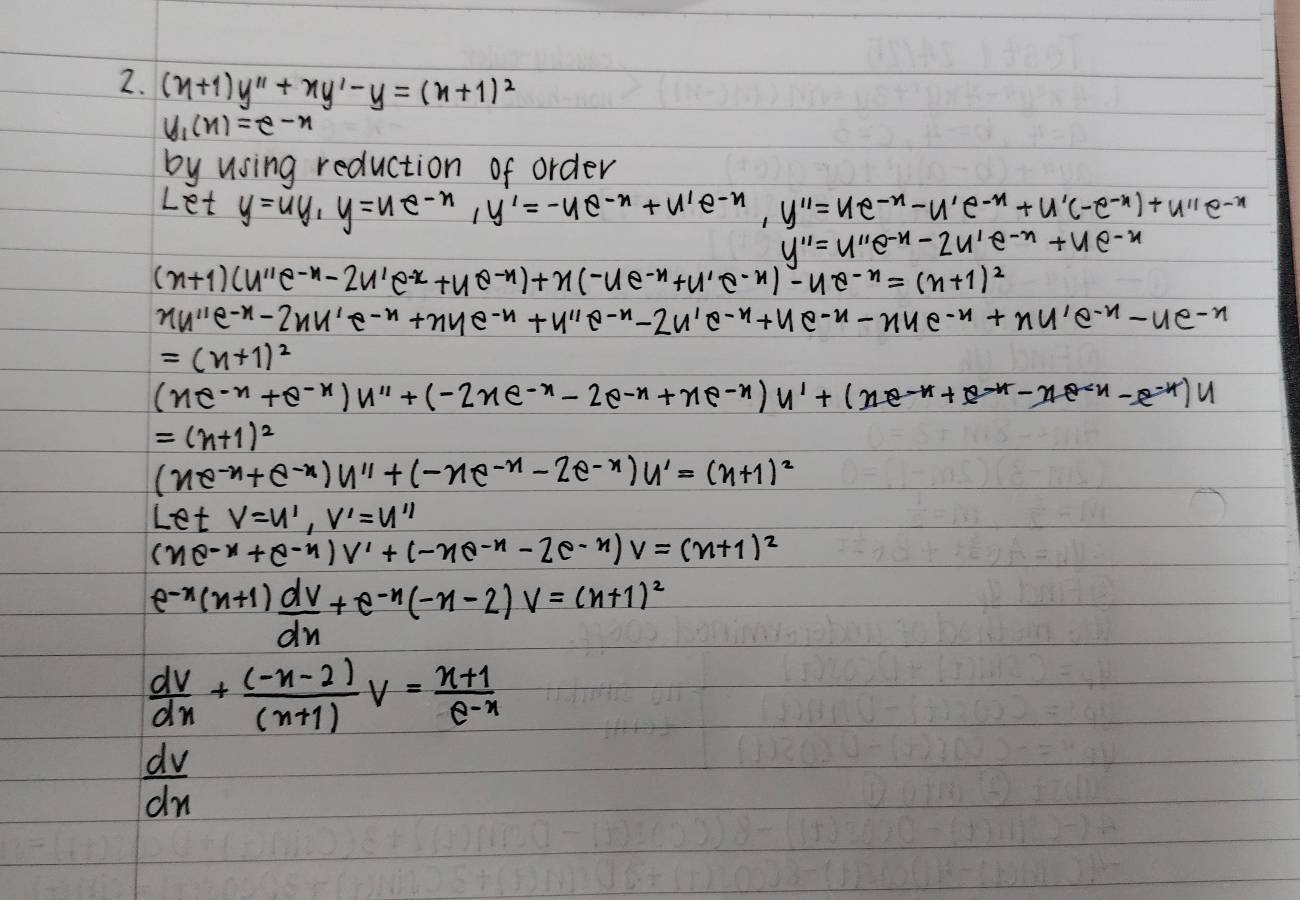 2. (x+1)y'' + xy' - y = (x+1)²
y₁(x) = e^-x
by using reduction of order
Let y = uy₁ y = ue^-x , y' = -ue^-x + u'e^-x , y'' = ue^-x - u'e^-x + u'(-e^-x) + u''e^-x
y'' = u''e^-x - 2u'e^-x + ue^-x
(x+1)(u''e^-x - 2u'e^-x + ue^-x) + x(-ue^-x + u'e^-x) - ue^-x = (x+1)²
xu''e^-x - 2xu'e^-x + xue^-x + u''e^-x - 2u'e^-x + ue^-x - xue^-x + xu'e^-x - ue^-x
= (x+1)²
(xe^-x + e^-x)u'' + (-2xe^-x - 2e^-x + xe^-x)u' + (xe^-x + e^-x - xe^-x - e^-x)u
= (x+1)²
(xe^-x + e^-x)u'' + (-xe^-x - 2e^-x)u' = (x+1)²
Let v = u' , v' = u''
(xe^-x + e^-x)v' + (-xe^-x - 2e^-x)v = (x+1)²
e^-x(x+1) dv/dx + e^-x(-x-2)v = (x+1)²
dv/dx + (-x-2)/(x+1) v = x+1/e^-x
dv/dx